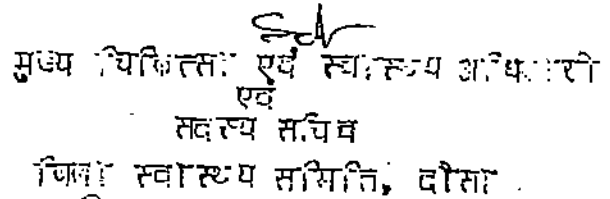 मुख्य चिकित्सा एवं स्वास्थ्य अधिकारी
एवं
सदस्य सचिव
जिला स्वास्थ्य समिति, दौसा